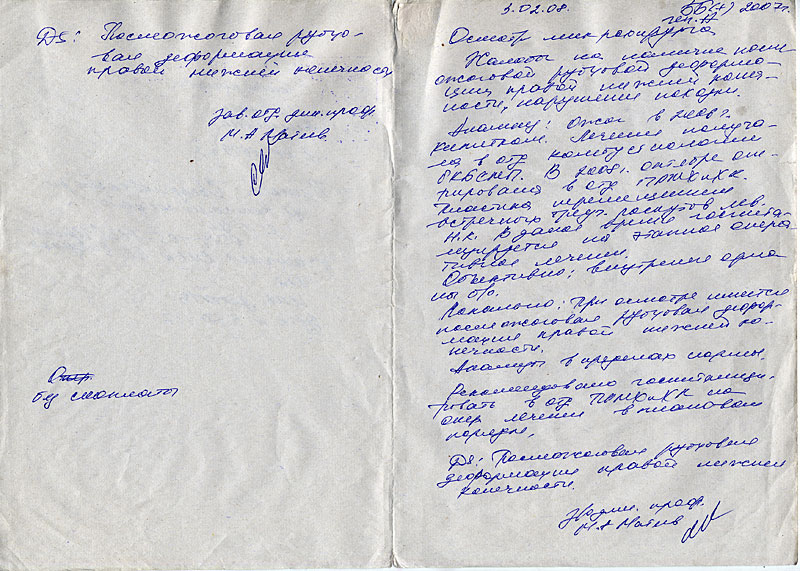 DS: Послеожоговая рубцо-
вая деформация
правой нижней конечности
зав. отд. дин. проф.
М. А. Матеев
без соплаты
3.02.08.
ББ(+) 2007г.
ген. А
Осмотр микрохирурга
Жалобы на наличие посл
ожоговой рубцовой деформа-
ции правой нижней конеч-
ности, нарушение походки.
Анамнез: Ожог в
кипятком. Лечение получа-
ла в отд
В 2008г. октябре опе-
рирована в отд ПРМХиХК.
Пластика перемещением
встречных треуг. лоскутов лев.
н.к. В данное время госпита-
лизируется на этапное опера-
тивное лечение.
Объективно: внутренние орга-
ны б/о.
Локально: При осмотре имеется
послеожоговая рубцовая дефор-
мация правой нижней ко-
нечности.
Анализы в пределах нормы.
Рекомендовано госпитализи-
ровать в отд ПРМХиХК на
опер лечение в плановом
порядке.
DS: Послеожоговая рубцовая
деформация правой нижней
конечности.
проф.
М. А Матеев